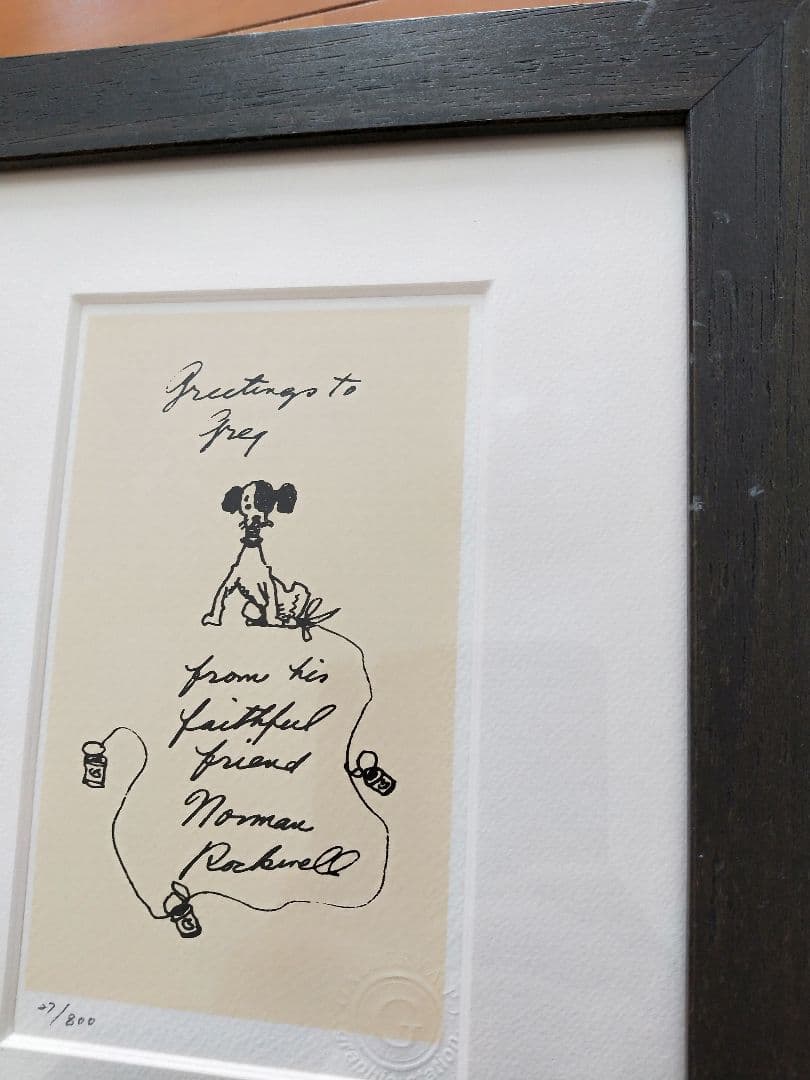 Greetings to
from his
faithful
friend
Norman
Rockwell
27/800